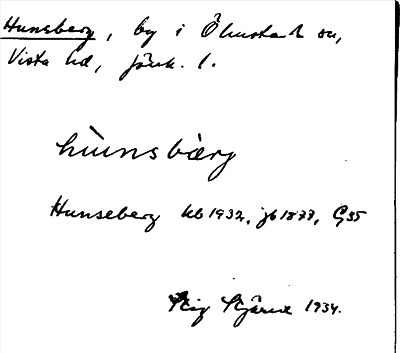 Hunsberg, by i Ölmstad sn,
Vista hd, Jönk. l.
hùnsbàrg
Hunseberg kb 1932, jb 1877, G 35
Stig 1934.